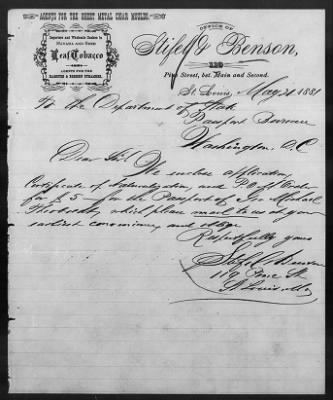 AGENTS FOR THE SHEET METAL CIGAR MOULDS.
Importers and Wholesale Dealers in
HAVANA AND SEED
Leaf Tobacco
AGENTS FOR THE
OFFICE OF
Stifel & Benson,
Pine Street, bet. Main and Second.
St. Louis, May 21 1881
To the Department of State
Passport Bureau
Washington D.C
Dear Sir!
We enclose application,
Certificate of Naturalization, and P.O.M Order
for $5 — for the Passport of Geo Michael
which please mail to us at your
earliest convenience and oblige
Respectfully yours
Stifel & Benson
119 Pine St
St Louis Mo